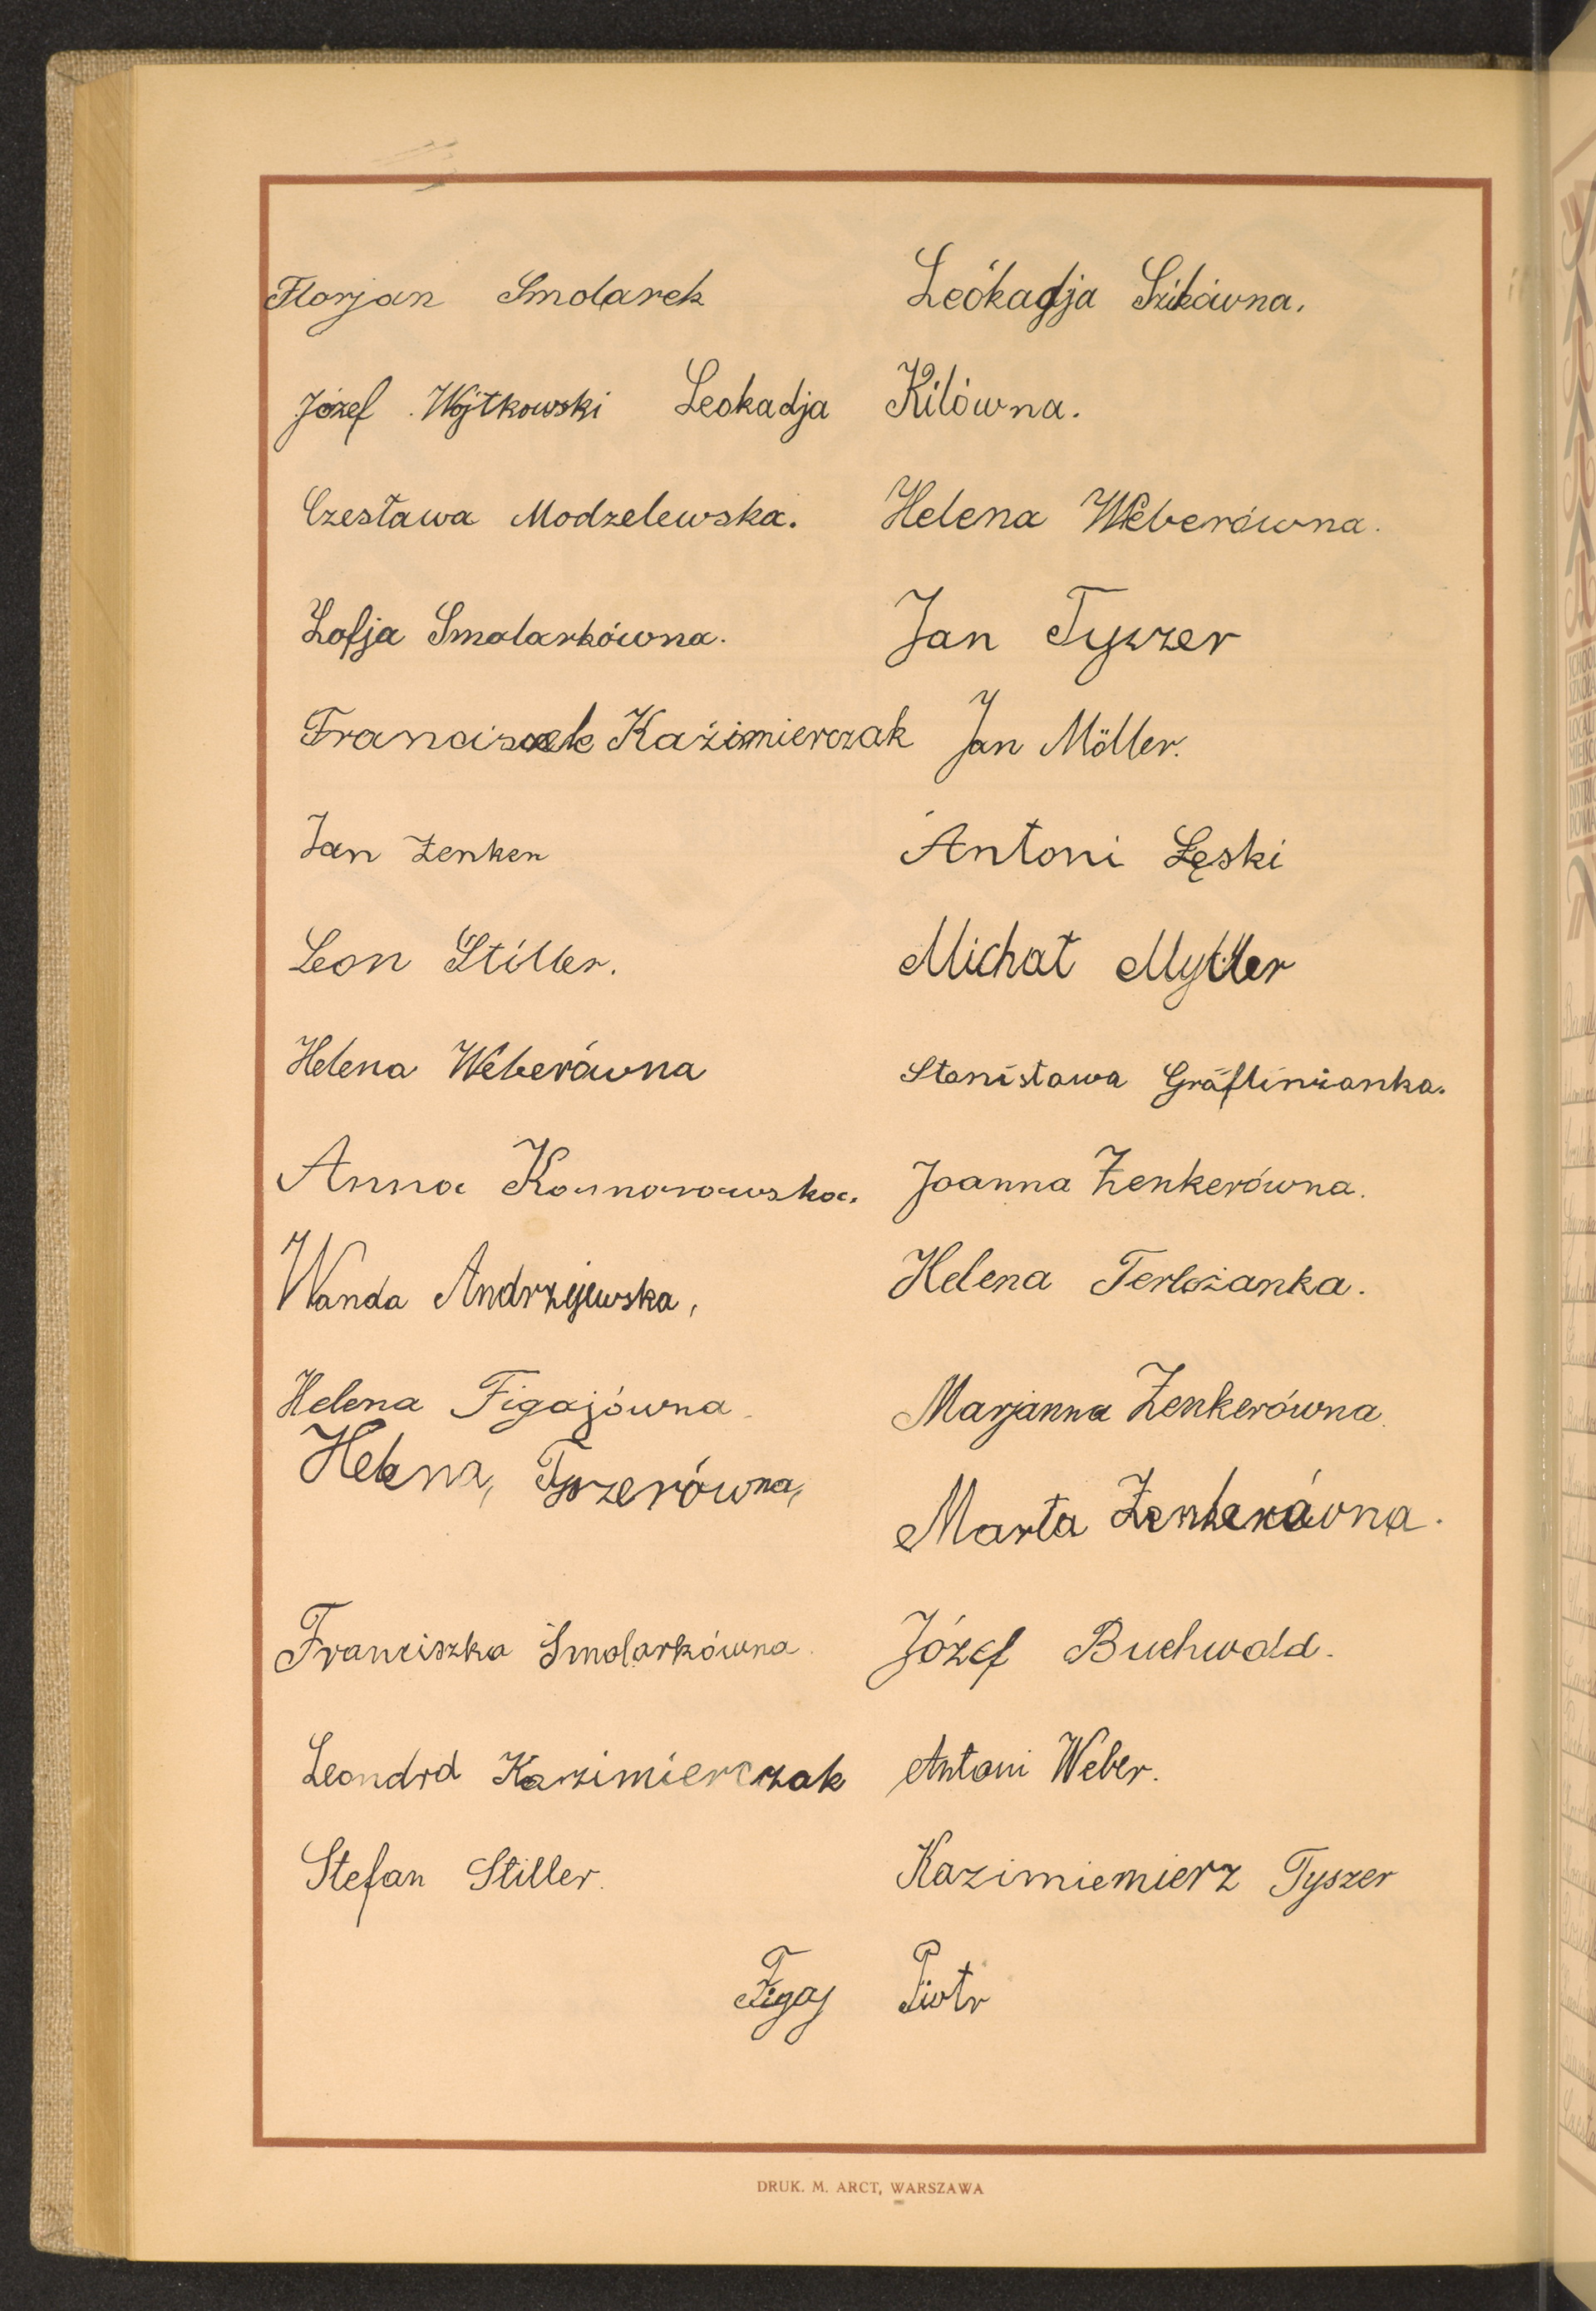 Florjan Smolarek Leókadja Szikówna.
Józef Wójtkowski Leokadja Kilówna.
Czesława Modzelewska. Helena Weberówna.
Zofja Smolarkówna. Jan Tyszer
Franciszek Kaźimierczak Jan Möller.
Jan Zenker Antoni Łęski
Leon Stiller. Michał Myller
Helena Weberówna Stanisława Gräflinżanka.
Anna Komorowska. Joanna Zenkerówna.
Wanda Andrzejewska, Helena Terlożanka.
Helena Figajówna Marjanna Zenkerówna.
Helena, Tyszerówna,
Marta Zenkerówna.
Franciszka Smolarkówna. Józef Buchwald.
Leondrd Kazimierczak Antoni Weber.
Stefan Stiller. Kazimiemierz Tyszer
Figaj Piotr
DRUK. M. ARCT, WARSZAWA